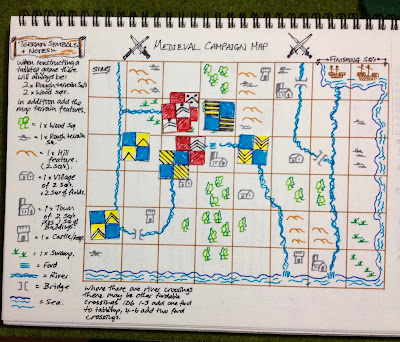 TERRAIN SYMBOLS
+ NOTES:-
MEDIEVAL CAMPAIGN MAP
When constructing a
tabletop game there
will always be:
2 x Rough terrain Sqs
2 x Wood sqs.
In addition add the
map terrain features.
= 1 x Wood Sq
= 1 x Rough terrain
Sq.
= 1 x Hill
feature.
(2 Sqs)
= 1 x Village
of 2 Sqs
+ 2 Sqs of fields.
= 1 x Town
of 2 Sqs
Buildings
= 1 x Castle/
= 1 x Swamp.
= Ford
= River
= Bridge
= Sea.
START
FINISHING SQS
Where there are river crossings
there may be other fordable
crossings. 1D6 1-3 add one ford
to tabletop, 4-6 add two ford
crossings.